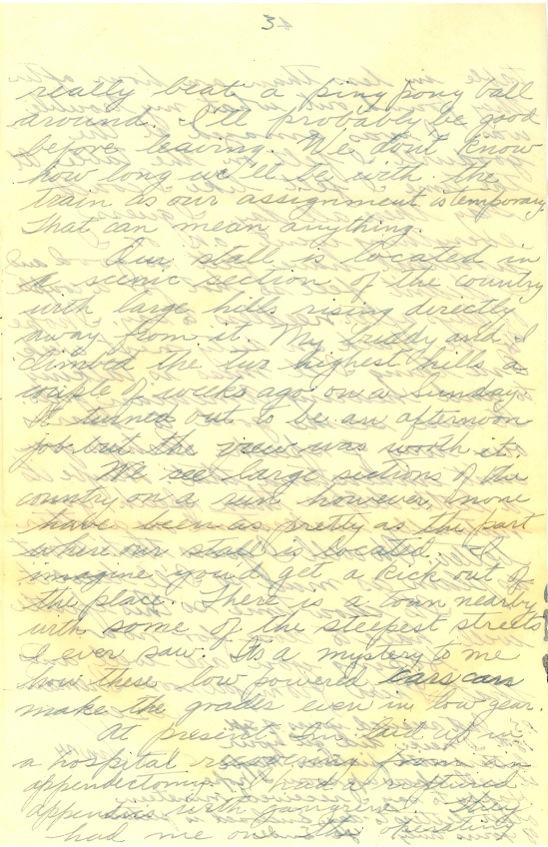 3
really beat a ping pong ball
around. I'll probably be good
before leaving. We dont know
how long we'll be with the
train as our assignment is temporary.
That can mean anything.
Our stall is located in
a scenic section of the country
with large hills rising directly
away from it. My buddy and I
climbed the two highest hills a
couple of weeks ago on a Sunday.
It turned out to be an afternoon
job but the view was worth it.
We see large sections of the
country on a run however, none
have been as pretty as the part
where our stall is located. I
imagine you'd get a kick out of
the place. There is a town nearby
with some of the steepest streets
I ever saw. Its a mystery to me
how these low powered cars can
make the grades even in low gear.
At present I'm laid up in
a hospital recovering from an
appendectomy. I had a ruptured
appendix with gangrene. They
had me on the operating